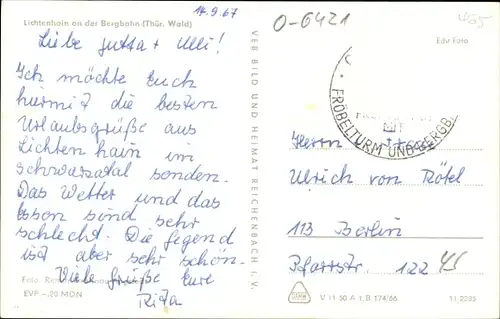 14.9.67
O-6421
Lichtenhain an der Bergbahn (Thür. Wald)
Edv Foto
Liebe Jutta + Ulli!
Ich möchte Euch
hiermit die besten
Urlaubsgrüße aus
Lichtenhain im
Schwarzatal senden.
Das Wetter und das
Essen sind sehr
schlecht. Die Gegend
ist aber sehr schön.
Viele Grüße Eure
Rita
EVP –,20 MDN
VEB BILD UND HEIMAT REICHENBACH i. V.
MIT
FRÖBELTURM UND BERGB
Herrn
Ulrich von Rötel
113 Berlin
Pfarrstr. 122
V 11 50 A 1 B 174/66
11 2285